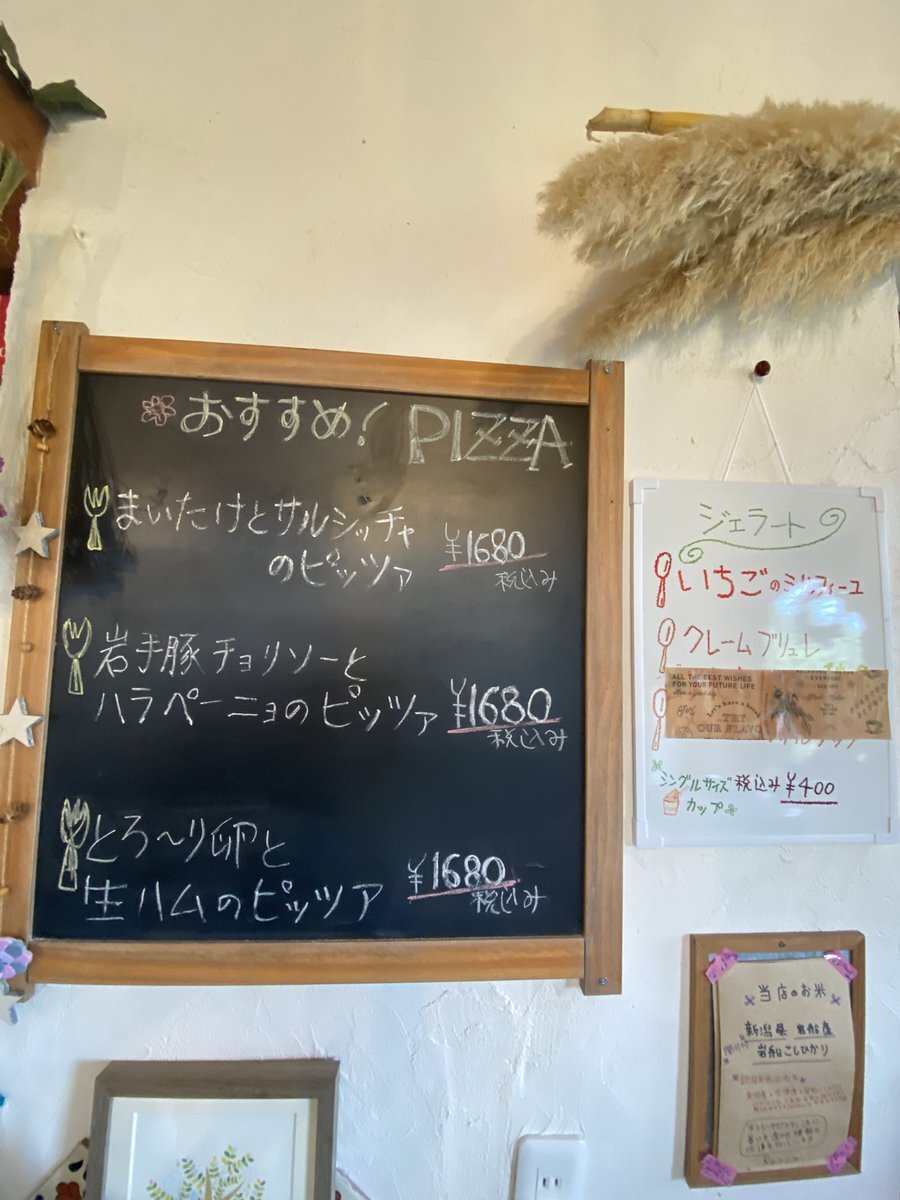 おすすめ! PIZZA
まいたけとサルシッチャ
のピッツァ
¥1680
税込み
岩手豚チョリソーと
ハラペーニョのピッツァ
¥1680
税込み
とろ〜り卵と
生ハムのピッツァ
¥1680
税込み
ジェラート
いちごのミルフィーユ
クレームブリュレ
ALL THE BEST WISHES
FOR YOUR FUTURE LIFE
Let's have a break
TRY
OUR FLAVO
シングルサイズ 税込み ¥400
カップ
当店のお米
新潟県 岩船産
岩船こしひかり